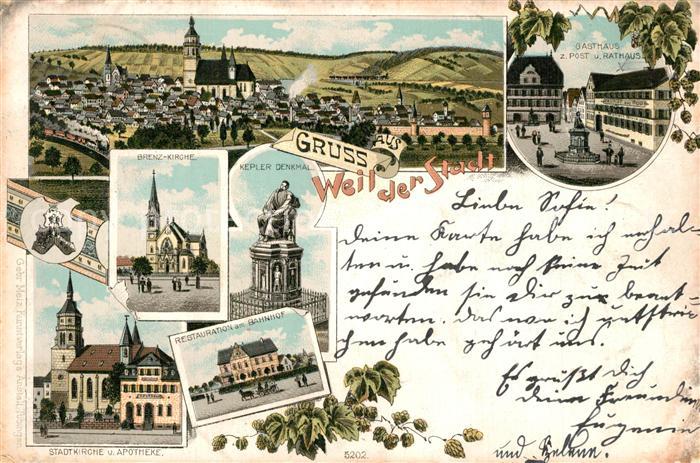 GASTHAUS
z. POST u. RATHAUS.
GRUSS AUS
Weil der Stadt
BRENZ-KIRCHE.
KEPLER DENKMAL.
Liebe Sofie!
Deine Karte habe ich erhal-
ten u. habe noch keine Zeit
gefunden sie Dir zu beant-
worten. das was ich
habe gehört uns.
Es grüßt dich
deine Freundin
Eugenie
und Helene.
RESTAURATION am BAHNHOF
STADTKIRCHE u. APOTHEKE.
5202.
Gebr. Metz, Kunstverlags-Anstalt, Tübingen